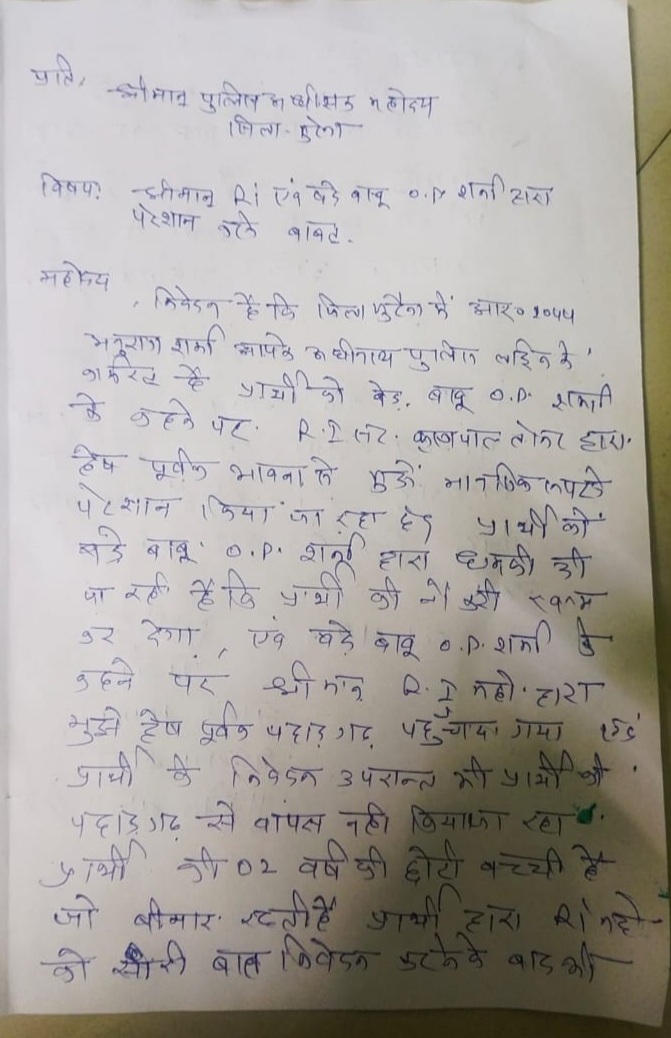 प्रति,
श्रीमान् पुलिस अधीक्षक महोदय
जिला - मुरैना
विषय: श्रीमान् RI एवं बडे बाबू O.P शर्मा द्वारा
परेशान करने बावत.
महोदय
, निवेदन है कि जिला मुरैना में आर० 1044
शर्मा आपके अधीनस्थ पुलिस लाईन में
कार्यरत है प्रार्थी को बडे. बाबू O.P. शर्मा
के कहने पर. R.I तोमर द्वारा.
द्वेष पूर्वक भावना से मुझे मानसिक रूप से
परेशान किया जा रहा है प्रार्थी को
बडे बाबू O.P. शर्मा द्वारा धमकी दी
जा रही है कि प्रार्थी की नौकरी खत्म
कर देगा, एवं बडे बाबू O.P. शर्मा के
कहने पर श्रीमान् R.I महो. द्वारा
मुझे द्वेष पूर्वक पहाडगढ पहुँचाया गया एवं
प्रार्थी के निवेदन उपरान्त भी प्रार्थी को
पहाडगढ से वापस नही किया जा रहा
प्रार्थी की 02 वर्ष की छोटी बच्ची है
जो बीमार रहती है प्रार्थी द्वारा RI महो.
को सारी बात निवेदन करने के बाद भी